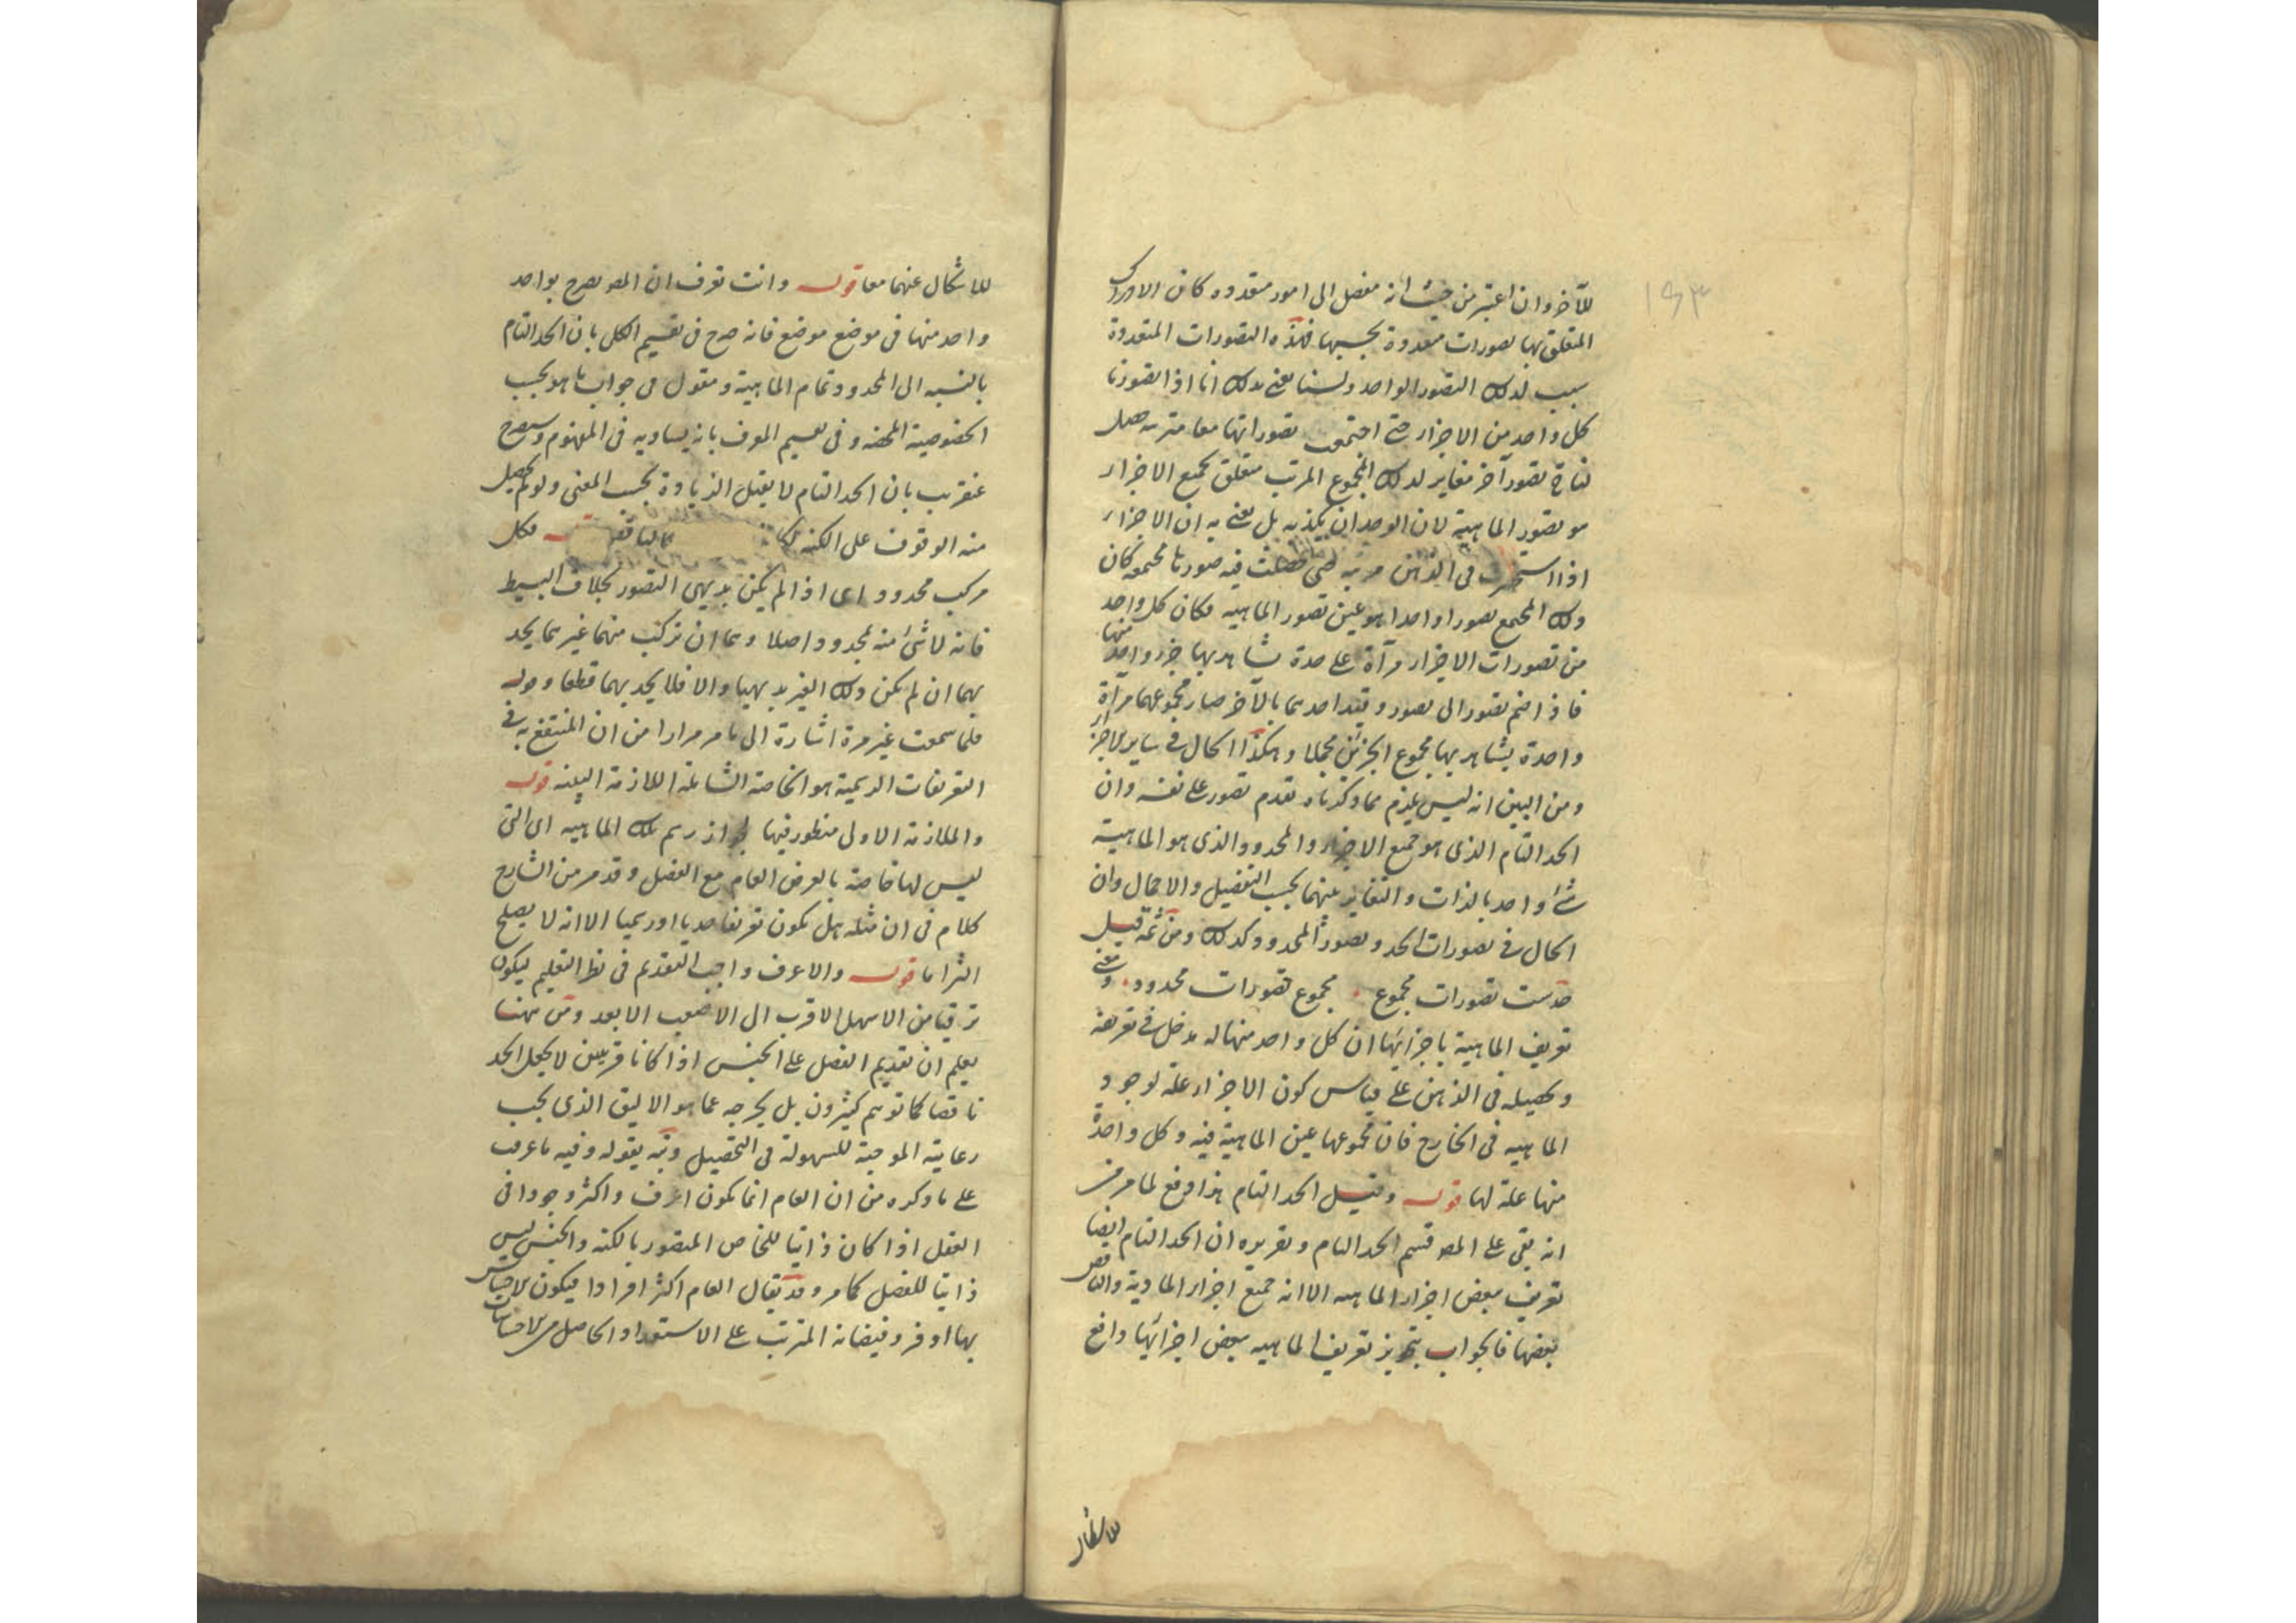 ١٩٣
للآخر وان اعتبر من حيث انه مفصل الى امور متعدده كان الادراك
المتعلق بها تصورات متعدوة بحسبها فهذه التصورات المتعددة
سبب لذلك التصور الواحد ولسنا نعنى بذلك انا اذا تصورنا
كل واحد من الاجزاء حتى اجتمعت تصوراتها معا مترتبه حصل
لنا تصور آخر مغاير لذلك المجموع المرتب متعلق بجميع الاجزاء
هو تصور الماهية لان الوجدان يكذبه بل نعنى به ان الاجزاء
اذا استحضرت فى الذهن مرتبه حتى حصلت فيه صورنا مجتمعه كان
ذلك المجتمع تصورا واحدا هو عين تصور الماهيه فكان كل واحد
من تصورات الاجزاء مرآة على حدة يشاهد بها جزء واحد منها
فاذا ضم تصور الى تصور وقيد احدهما بالآخر صار مجموعهما مرآة
واحدة يشاهد بها مجموع الجزئين مجملا وهكذا الحال فى ساير الاجزاء
ومن البين انه ليس يلزم مما ذكرناه تقدم تصور على نفسه وان
الحد التام الذى هو جميع الاجزاء والمحدود الذى هو الماهية
شئ واحد بالذات والتغاير بينهما بحسب التفصيل والاجمال وان
الحال فى تصورات الحد وتصور المحدود كذلك ومن ثمه قيل
حدست تصورات مجموع . مجموع تصورات محدود . ومعنى
تعريف الماهية باجزائها ان كل واحد منها له مدخل فى تعريفه
وتحصيله فى الذهن على قياس كون الاجزاء علة لوجود
الماهيه فى الخارج فان مجموعها عين الماهية فيه وكل واحدة
منها علة لها قوله وقيل الحد التام هذا دفع لما مر من
انه بقى على المصـ قسم الحد التام وتقريره ان الحد التام ايضا
تعريف ببعض اجزاء الماهيه الا انه جميع اجزاء المادية والناقص
بعضها فالجواب بتجويز تعريف الماهيه ببعض اجزائها دافع
للاشكال
للاشكال عنهما معا قوله وانت تعرف ان المصـ يصرح بواحد
واحد منها فى موضع موضع فانه صرح فى تقسيم الكل بان الحد التام
بالنسبه الى المحدود تمام الماهية ومقول فى جواب ما هو بحسب
الخصوصية المحضه وفى تقسيم المعرف بانه يساويه فى المفهوم وسيصرح
عنقريب بان الحد التام لا يقبل الزيادة بحسب المعنى ولو لم يحصل
منه الوقوف على الكنه لكان فكل
مركب محدود اى اذا لم يكن بديهى التصور بخلاف البسيط
فانه لا شئ منه بمحدود اصلا وهما ان تركب منهما غيرهما يحد
بهما ان لم يكن ذلك الغير بديهيا والا فلا يحد بهما قطعا وقوله
فلما سمعت غير مرة اشارة الى ما مر مرارا من ان المنتفع به فى
التعريفات الرسمية هو الخاصة الشاملة اللازمة البينه قوله
والملازمة الاولى منظور فيها لجواز رسم تلك الماهيه اى التى
ليس لها خاصة بالعرض العام مع الفصل وقد مر من الشارح
كلام فى ان مثله هل يكون تعريفا حديا او رسميا الا انه لا يصلح
التزاما قوله والاعرف واجب التقديم فى نظر التعليم ليكون
ترقيا من الاسهل الاقرب الى الاصعب الابعد ومن ههنا
يعلم ان تقديم الفصل على الجنس اذا كانا قريبين لا يجعل الحد
ناقصا كما توهم كثيرون بل يخرجه عما هو الاليق الذى يجب
رعايته الموجبة للسهولة فى التحصيل ونبه بقوله وفيه ما عرفت
على ما ذكره من ان العام انما يكون اعرف واكثر وجودا فى
العقل اذا كان ذاتيا للخاص المتصور بالكنه والجنس ليس
ذاتيا للفصل كما مر وقد يقال العام اكثر افرادا فيكون الاحساس
بها اوفر وفيضانه المترتب على الاستعداد الحاصل من الاحساسات